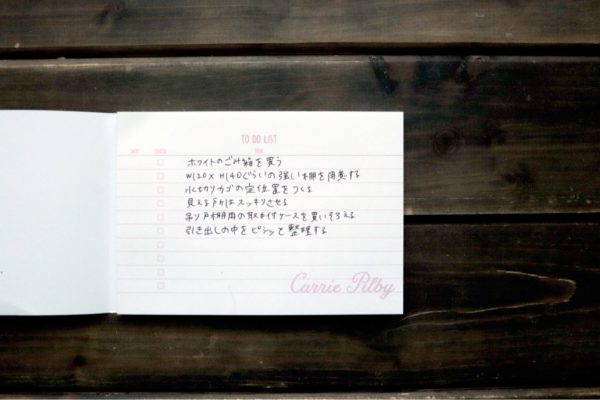 TO DO LIST
DATE CHECK ITEM
ホワイトのごみ箱を買う
W120×H140ぐらいの強い棚を用意する
水切りカゴの定位置をつくる
見える所はスッキリさせる
吊り戸棚用の取手付ケースを買いそろえる
引き出しの中をピシッと整理する
Carrie Pilby